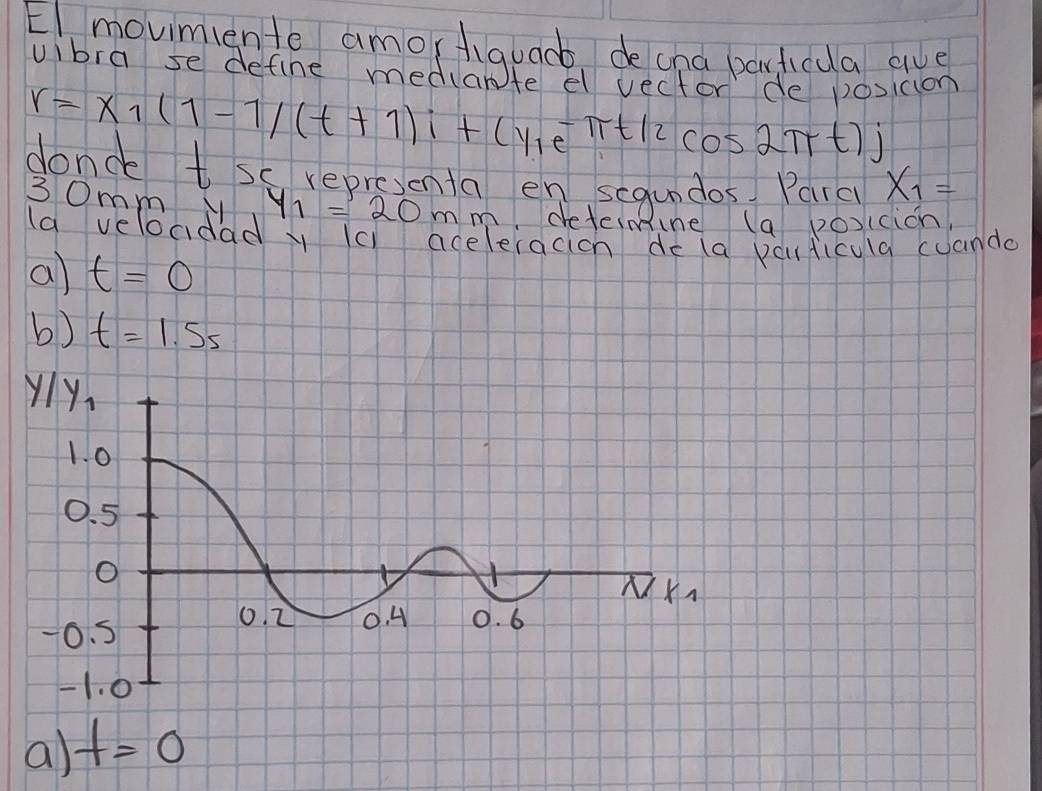 El movimiento amortiguado de una particula que
vibra se define mediante el vector de posicion
r = x1(1-1/(t+1)i + (y1e-πt/2 cos2πt)j
donde t se representa en segundos. Para x1 =
30mm y y1 = 20mm. determine la posición,
la velocidad y la aceleracion de la particula cuando
a) t = 0
b) t = 1.5s
y/y1
1.0
0.5
0
-0.5
-1.0
0.2
0.4
0.6
a) t = 0